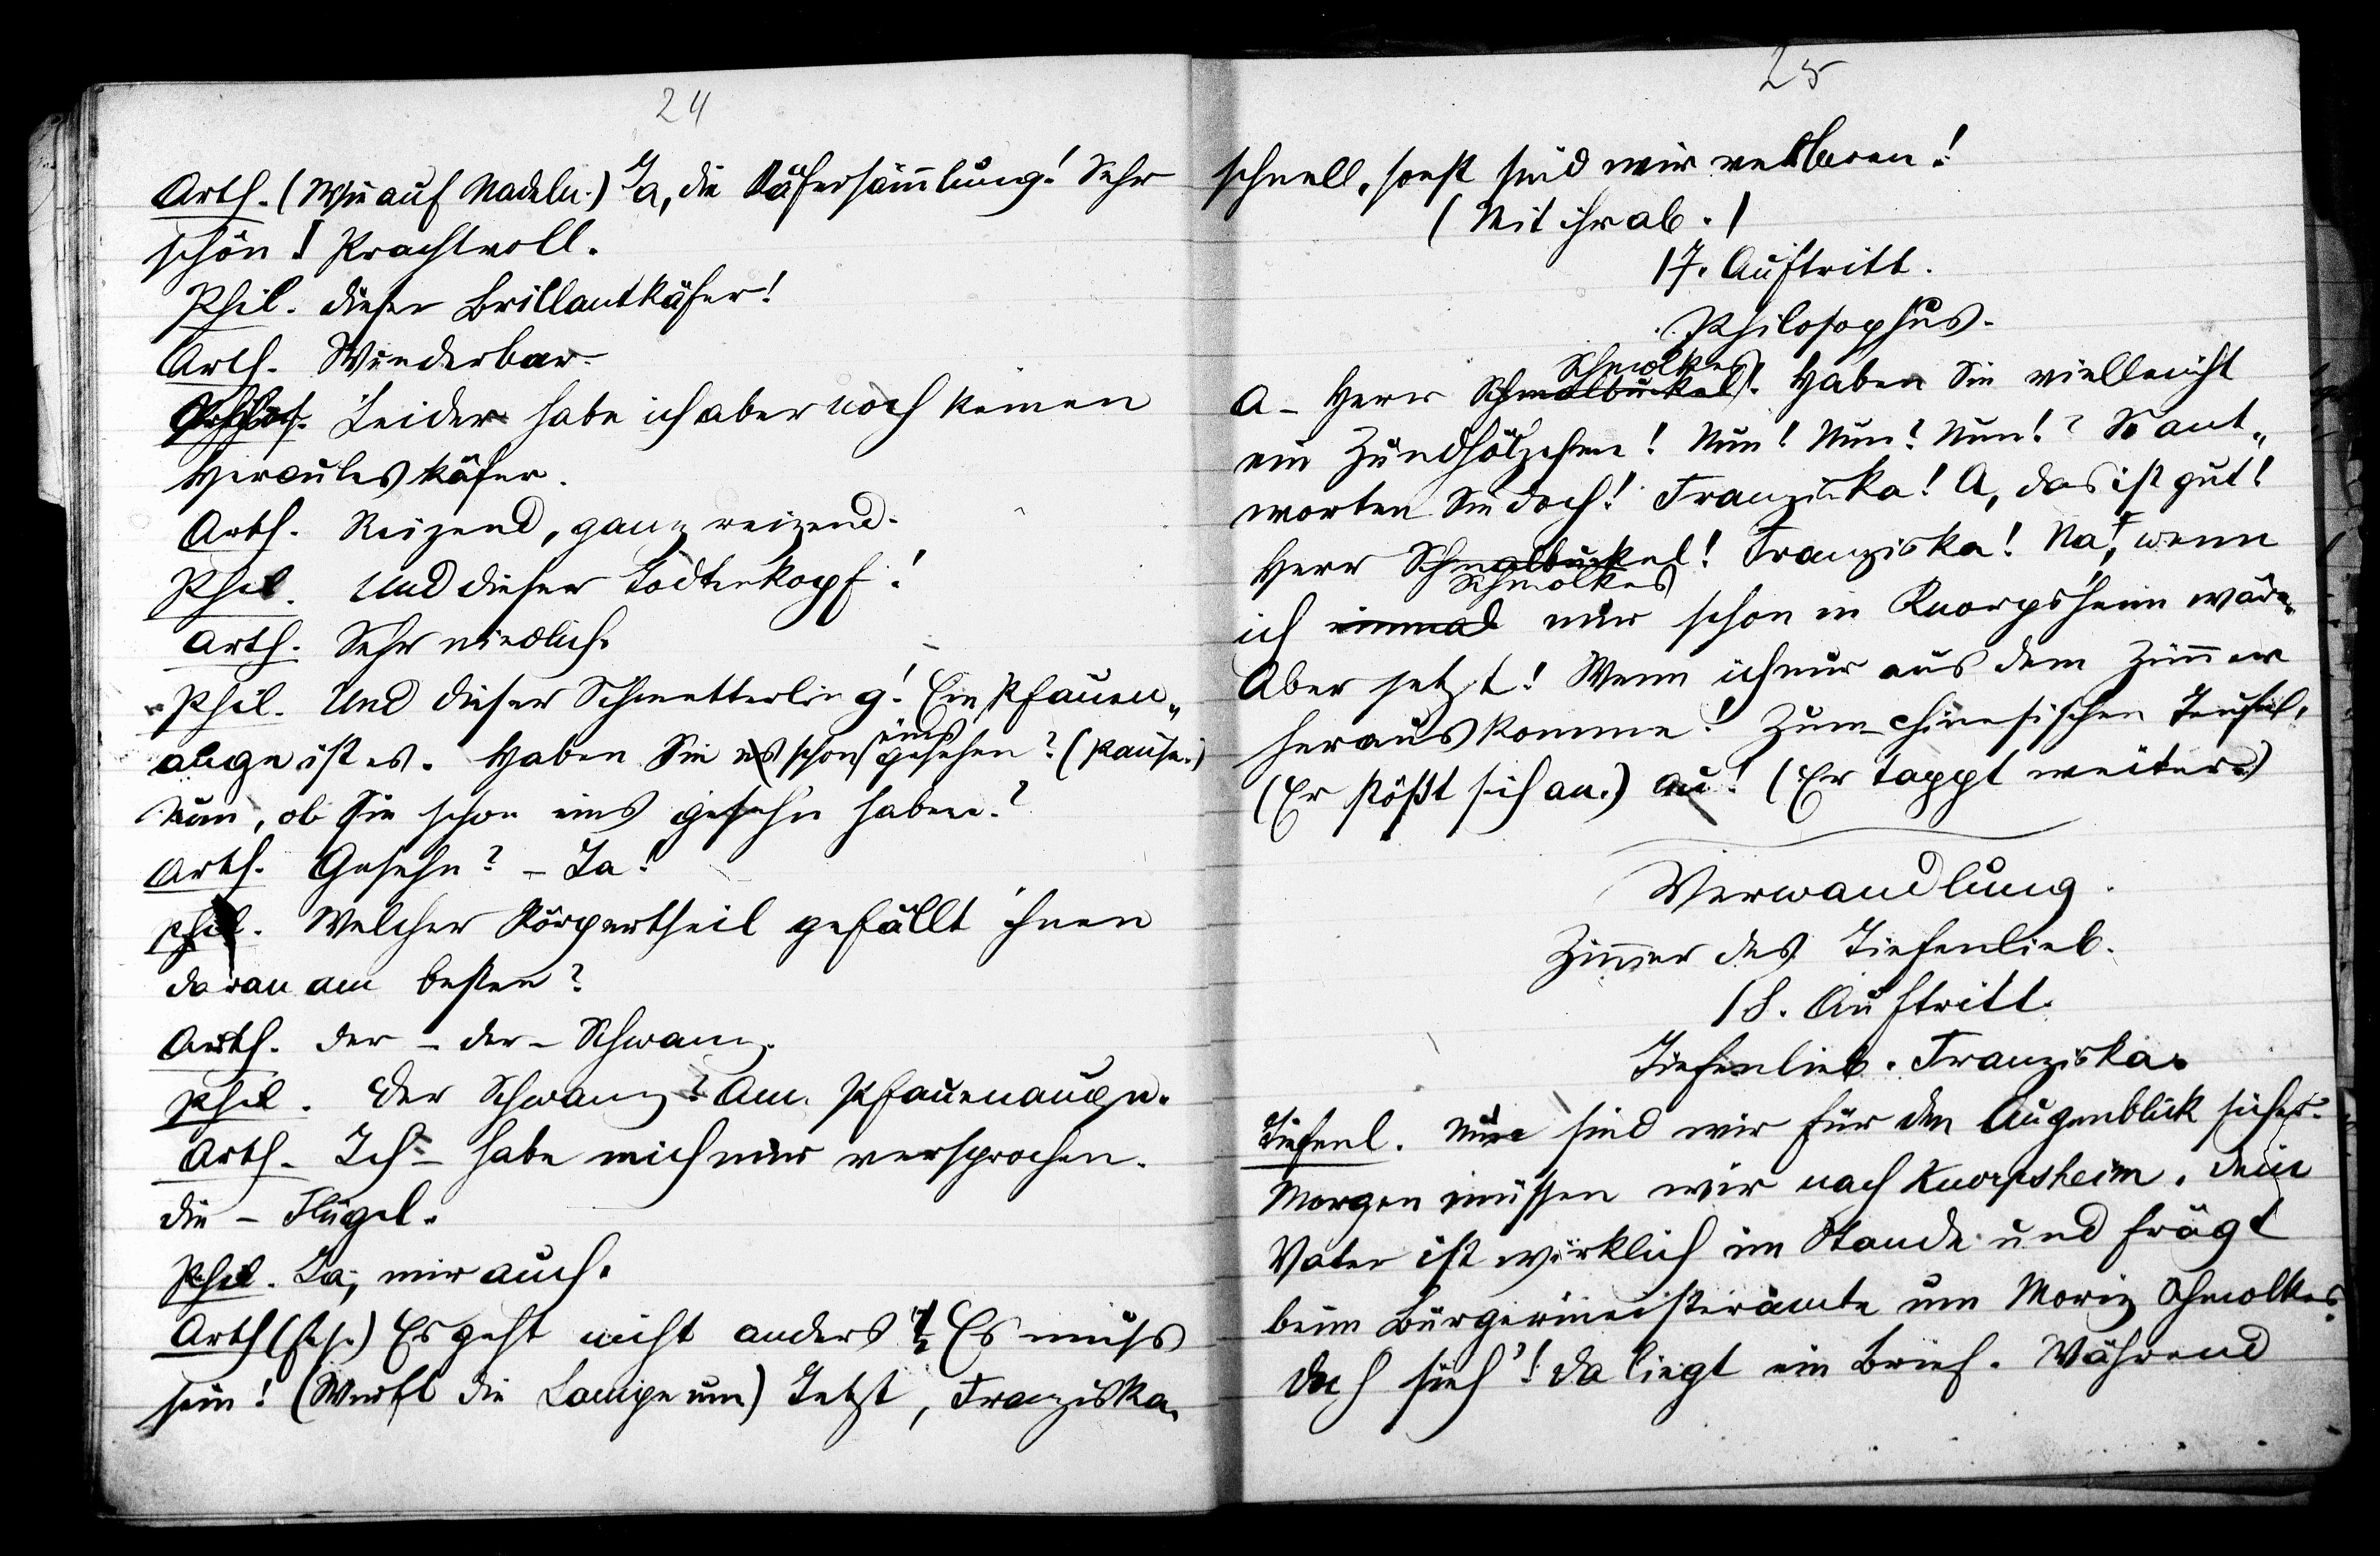 24
Arth. (Wie auf Nadeln.) Ja, die Käfersam̅lung! Sehr
schön! Prachtvoll.
Phil. Dieser Brillantkäfer!
Arth. Wunderbar.
Phil. Leider habe ich aber noch keinen
Herculeskäfer.
Arth. Reizend, ganz reizend.
Phil. Und dieser Todtenkopf!
Arth. Sehr niedlich.
Phil. Und dieser Schmetterling! Ein Pfauen„
auge ist es. Haben Sie es schon eins gesehen? (Pause.)
Nun, ob Sie schon eins gesehn haben?
Arth. Gesehn? – Ja!
Phil. Welcher Körpertheil gefällt ihnen
daran am besten?
Arth. Der – der – Schwanz.
Phil. Der Schwanz? Am Pfauenauge.
Arth. Ich – habe mich nur versprochen.
die – Flügel.
Phil. Ja, mir auch.
Arth (f. s.) Es geht nicht anders! Es muss
sein! (Wirft die Lampe um) Jetzt, Franziska,
25
schnell, sonst sind wir verloren!
(Mit ihr ab.)
17. Auftritt.
Philosophus.
Schmolkes
A – Herr Schmalbuckel! Haben Sie vielleicht
ein Zündhölzchen! Nun! Nun? Nun!? So ant„
worten Sie doch! Franziska! A, das ist gut!
Herr Schmalbuckel! Franziska! Na!, wenn
Schmolkes
ich einmal nur schon in Knorpsheim wäre.
Aber jetzt! Wenn ich nur aus dem Zim̅er
herauskomme! Zum chinesischen Teufel,
(Er stößt sich an.) Au! (Er tappt weiter.)
Verwandlung.
Zim̅er des Tiefenlieb.
18. Auftritt.
Tiefenlieb. Franziska.
Tiefenl. Nun sind wir für den Augenblick sicher.
Morgen müssen wir nach Knorpsheim. Dein
Vater ist wirklich im Stande und frägt
beim Bürgermeisteramte um Moriz Schmolkes.
Doch sieh'! Da liegt ein Brief. Während